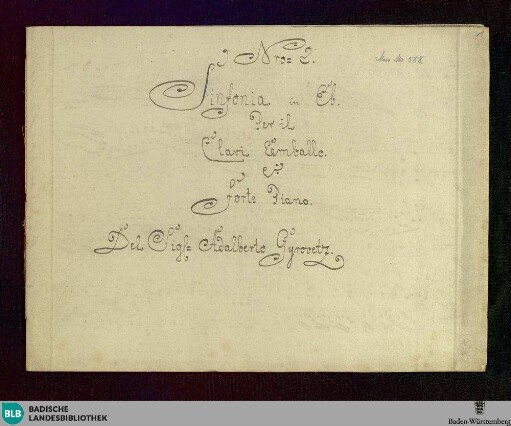 Nro= 2.
Sinfonia in Eb.
Per il
Clavi Cemballo.
&
Forte Piano.
Del Sigl= Adalberto Gyrovetz.
Mus. Ms.
BLB
BADISCHE
LANDESBIBLIOTHEK
Baden-Württemberg